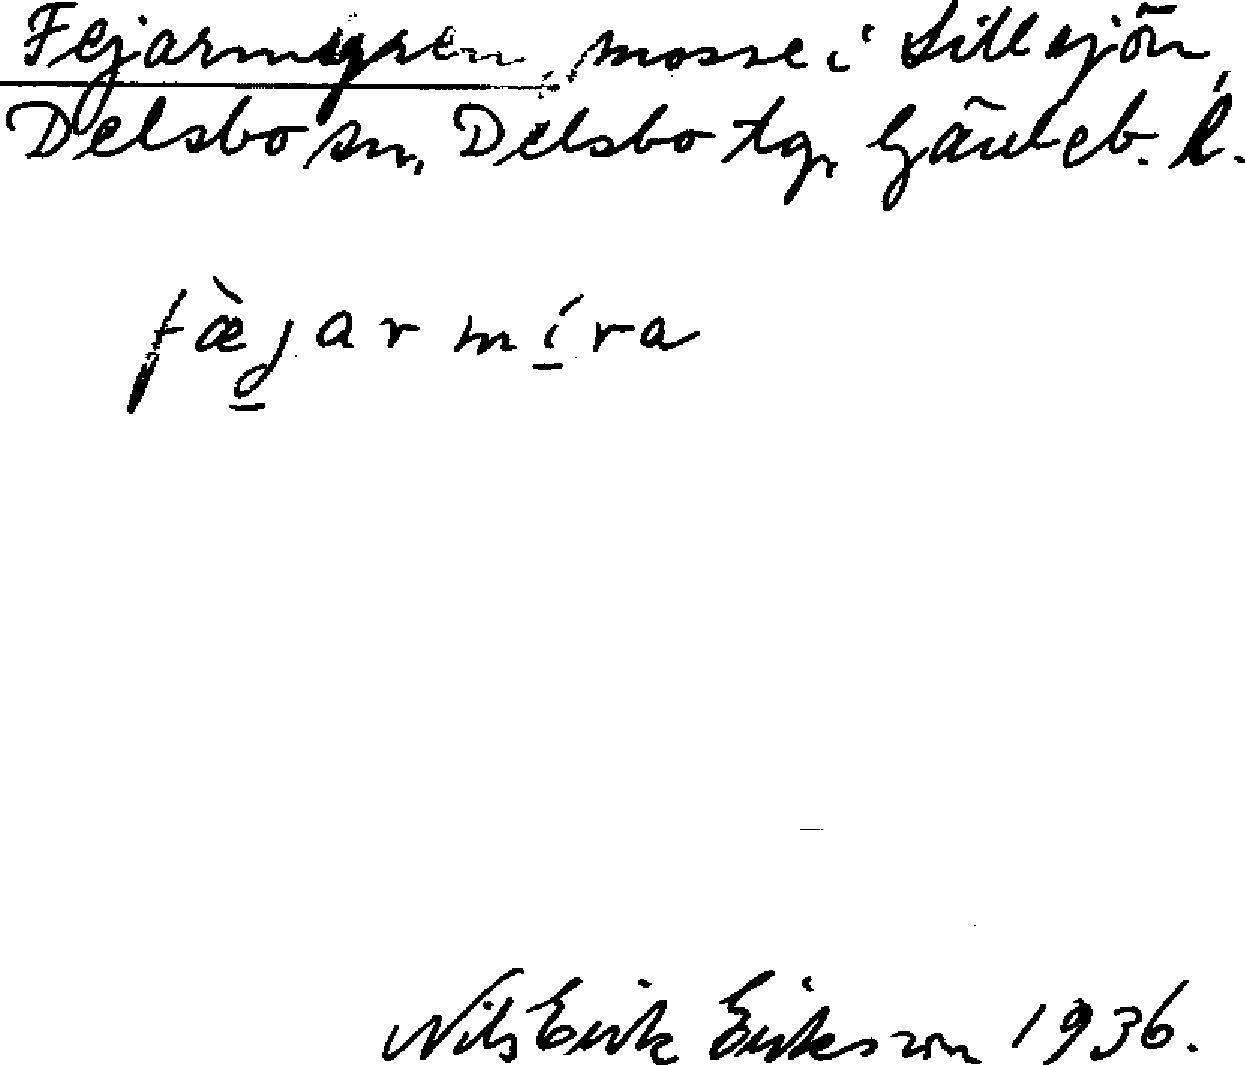 Fejarmyren, mosse i Lillsjön,
Delsbo sn, Delsbo tg, Gävleb. l.
fæ̀jar míra
Nils Erik Eriksson 1936.